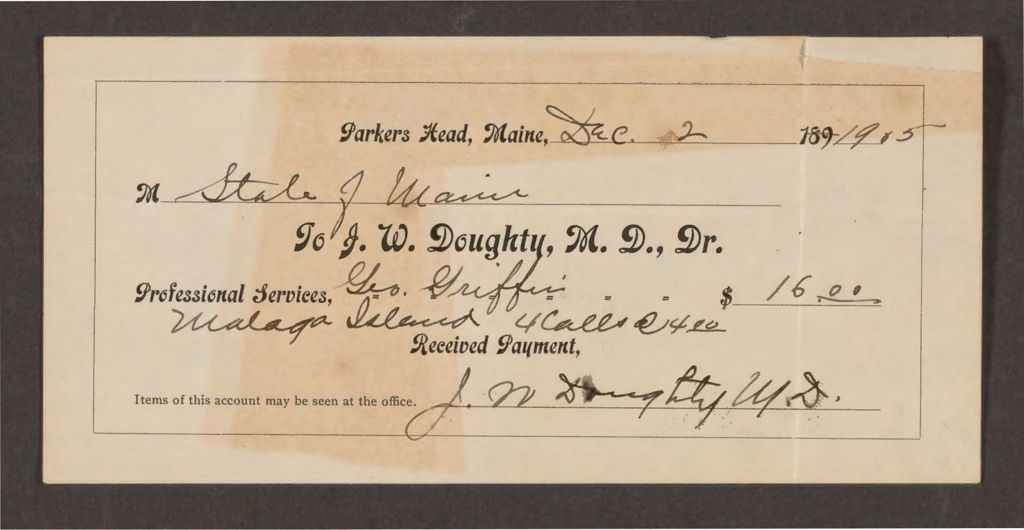 Parkers Head, Maine, Dec. 2 189 1905
M State of Maine
To J. W. Doughty, M. D., Dr.
Professional Services, Geo. Griffin $ 16.00
Malaga Island 4 Calls @ 4.00
Received Payment,
Items of this account may be seen at the office. J. W Doughty M.D.